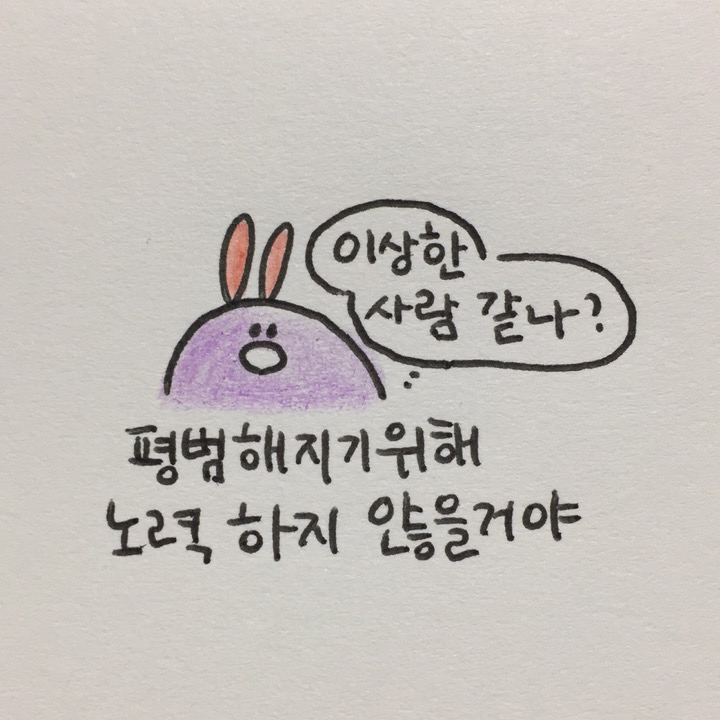 이상한
사람 같나?
평범해지기위해
노력 하지 않을거야